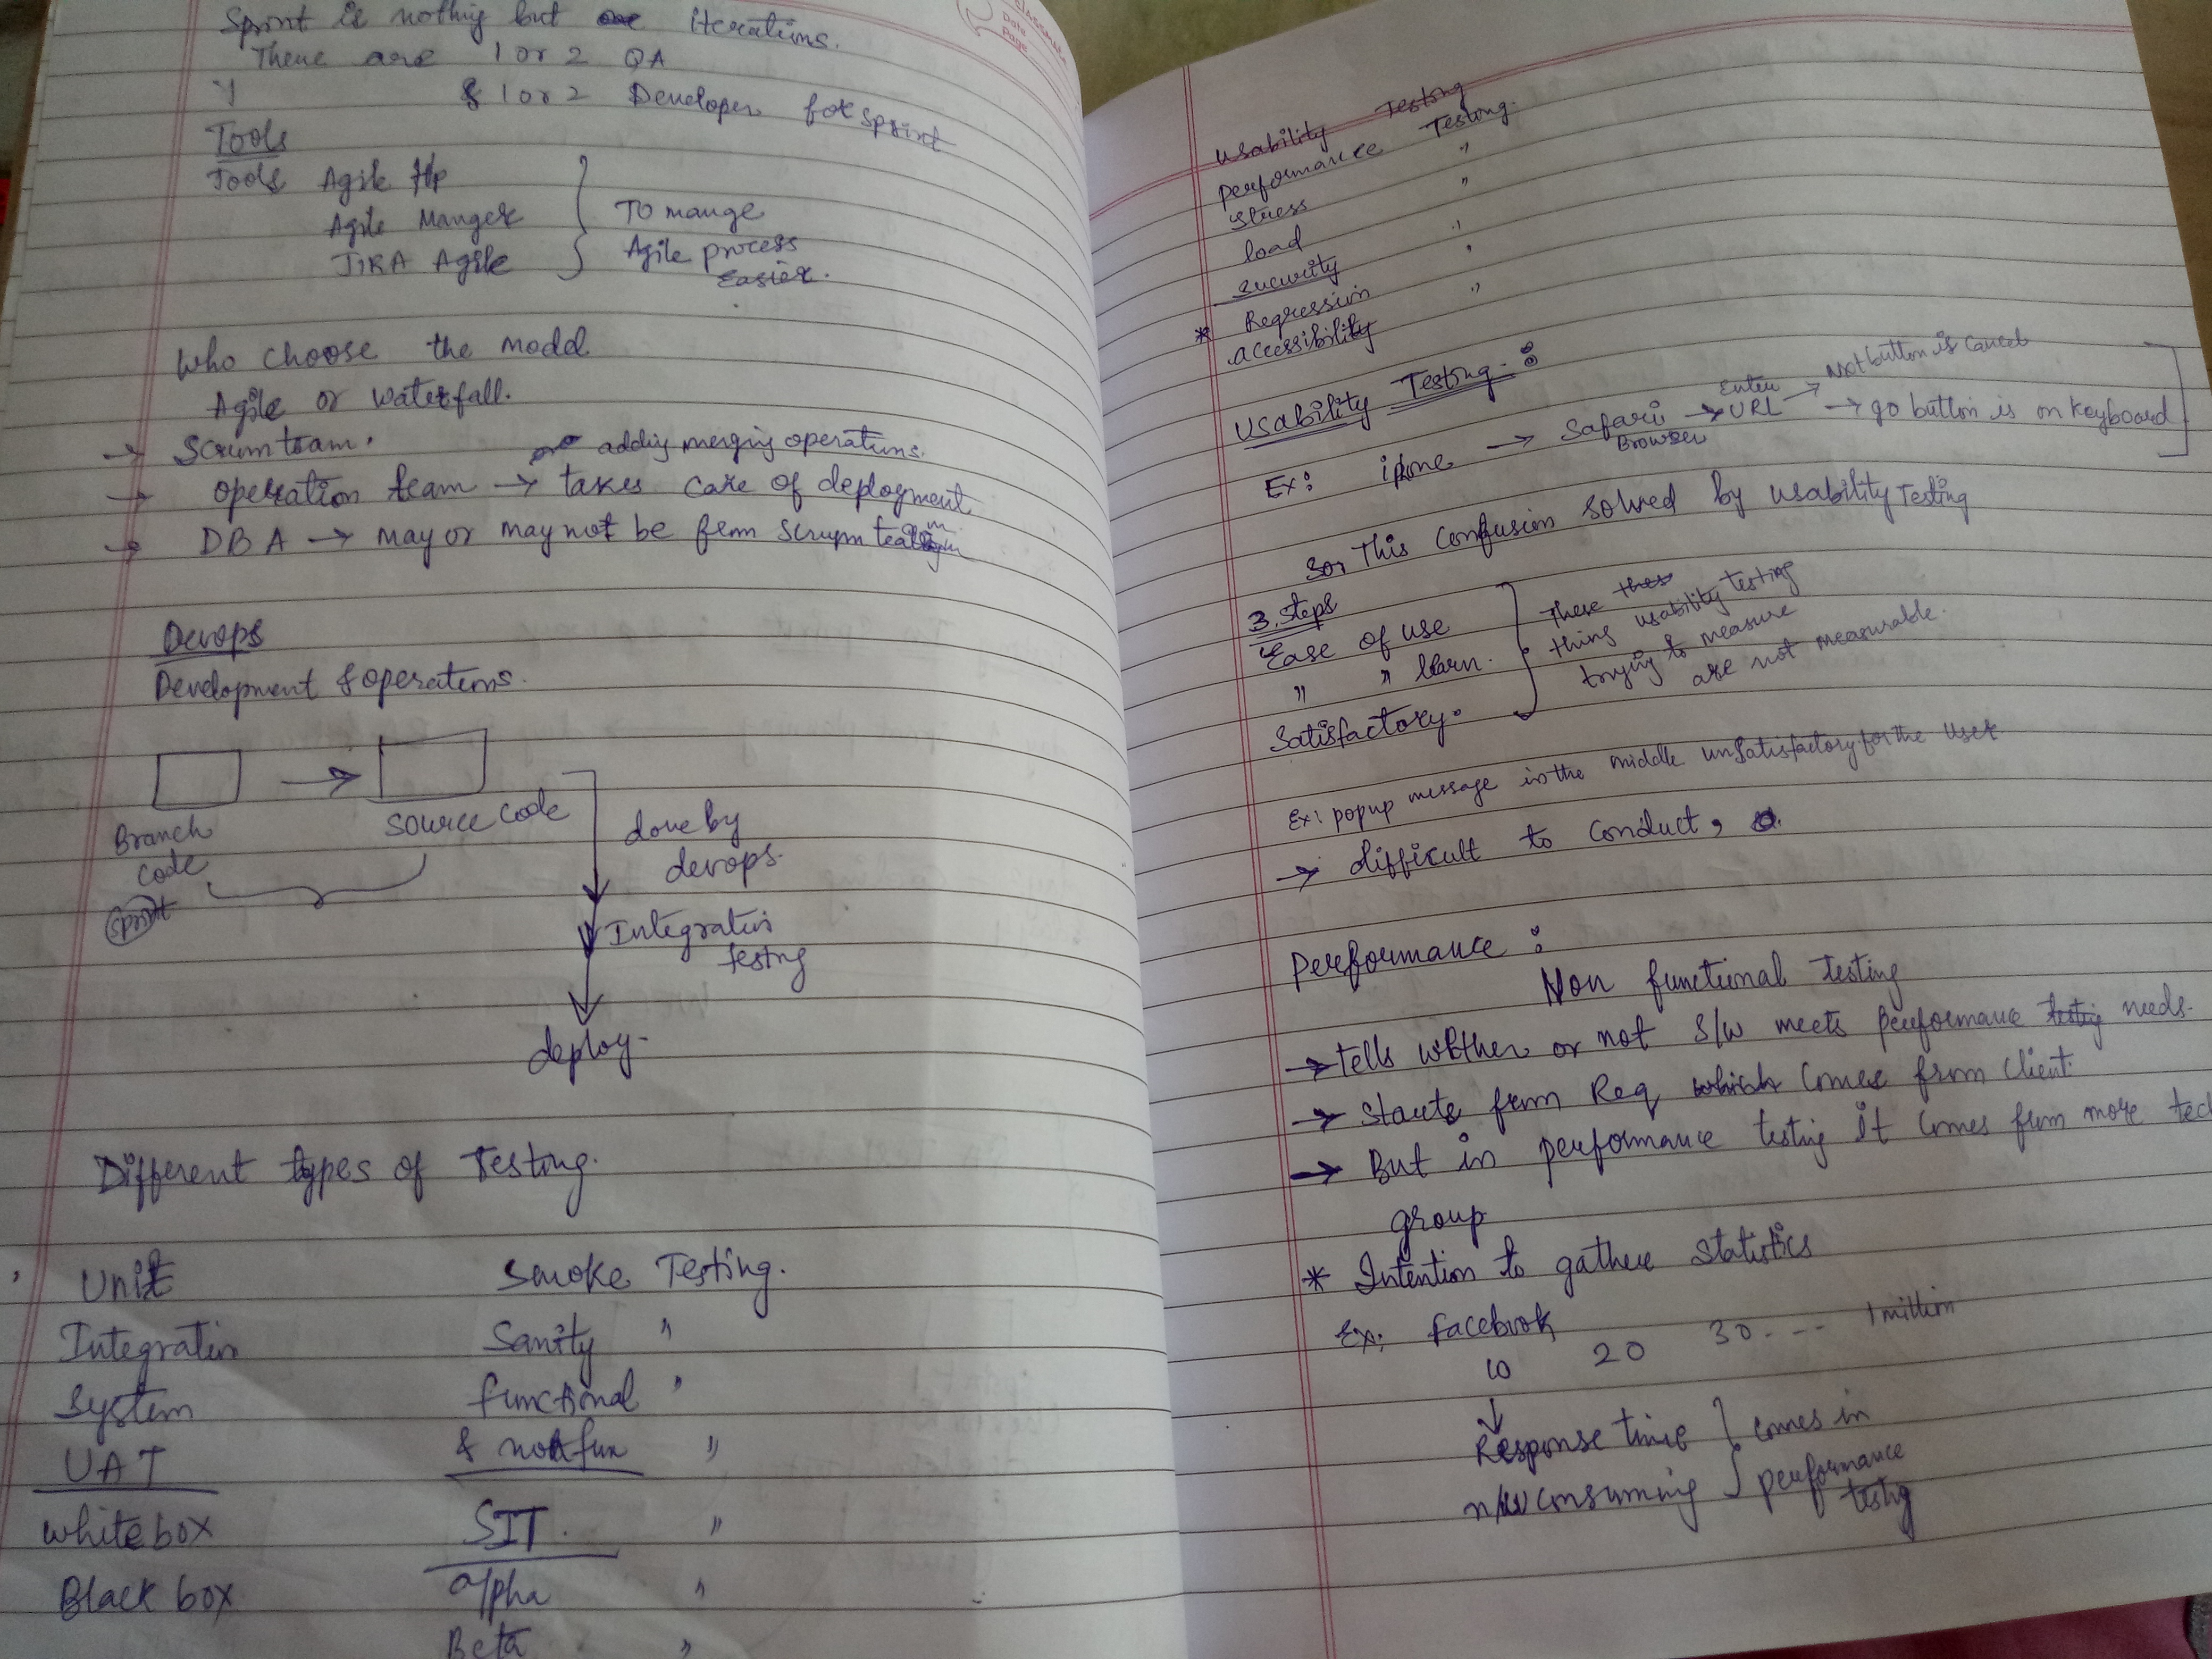 Sprint is nothing but iterations.
There are 1 or 2 QA
& 1 or 2 Developer for sprint
Tools
Tools Agile
Agile Manger
JIRA Agile
To mange
Agile process
easier.
Who choose the model
Agile or waterfall.
→ Scrum team.
adding merging operations.
→ operation team → takes care of deployment
→ DBA → may or may not be from scrum team
Devops
Development & operations.
Branch
code
sprint
source code
done by
devops.
Integration
testing
deploy.
Different types of Testing.
Unit Smoke Testing.
Integration Sanity "
System functional "
UAT & non fun "
white box SIT. "
Black box alpha "
Beta "
classmate
Date
Page
Usability Testing
performance Testing.
stress "
load "
security "
* Regression "
accessibility "
Usability Testing :
Ex: iphone → Safari Browser → Enter URL → Next button is cancel
→ go button is on keyboard
So, This confusion solved by usability Testing
3. Steps
Ease of use
" " learn.
Satisfactory.
These
thing usability testing
trying to measure
are not measurable.
Ex: popup message in the middle unsatisfactory for the user
→ difficult to conduct,
Performance :
Non functional testing
→ tells whther or not S/W meets performance testing needs.
→ Starts from Req which comes from client.
→ But in performance testing it comes from more tec
group
* Intention to gather statistics
Ex: facebook
10 20 30. - - 1 million
↓
Response time
n/w consuming
comes in
performance
testing